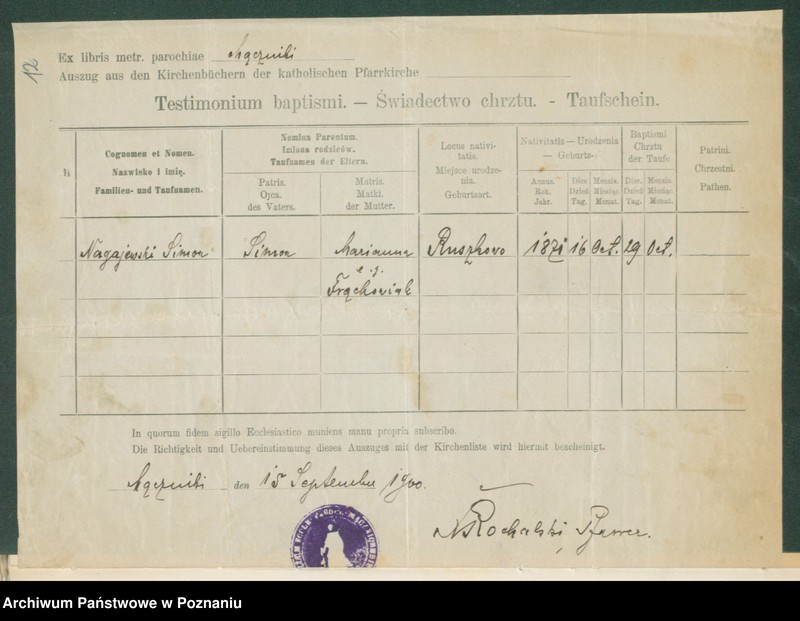 12
Ex libris metr. parochiae Mączniki
Auszug aus den Kirchenbüchern der katholischen Pfarrkirche
Testimonium baptismi. — Świadectwo chrztu. - Taufschein.
Cognomen et Nomen.
Nazwisko i imię.
Familien- und Taufnamen.
Nomina Parentum.
Imiona rodziców.
Taufnamen der Eltern.
Patris.
Ojca.
des Vaters.
Matris.
Matki.
der Mutter.
Locus nativi-
tatis.
Miejsce urodze-
nia.
Geburtsort.
Nativitatis — Urodzenia
— Geburts-
Annus.
Rok.
Jahr.
Dies
Dzień
Tag.
Mensis.
Miesiąc.
Monat.
Baptismi
Chrztu
der Taufe
Dies.
Dzień
Tag.
Mensis.
Miesiąc.
Monat.
Patrini.
Chrzestni.
Pathen.
Nagajewski Simon Simon Marianna Ruszkowo 1871 16 Oct. 29 Oct.
e. g.
Frąckowiak
In quorum fidem sigillo Ecclesiastico muniens manu propria subscribo.
Die Richtigkeit und Uebereinstimmung dieses Auszuges mit der Kirchenliste wird hiermit bescheinigt.
Mączniki den 15 September 1900.
Rochalski, Pfarrer.
Archiwum Państwowe w Poznaniu